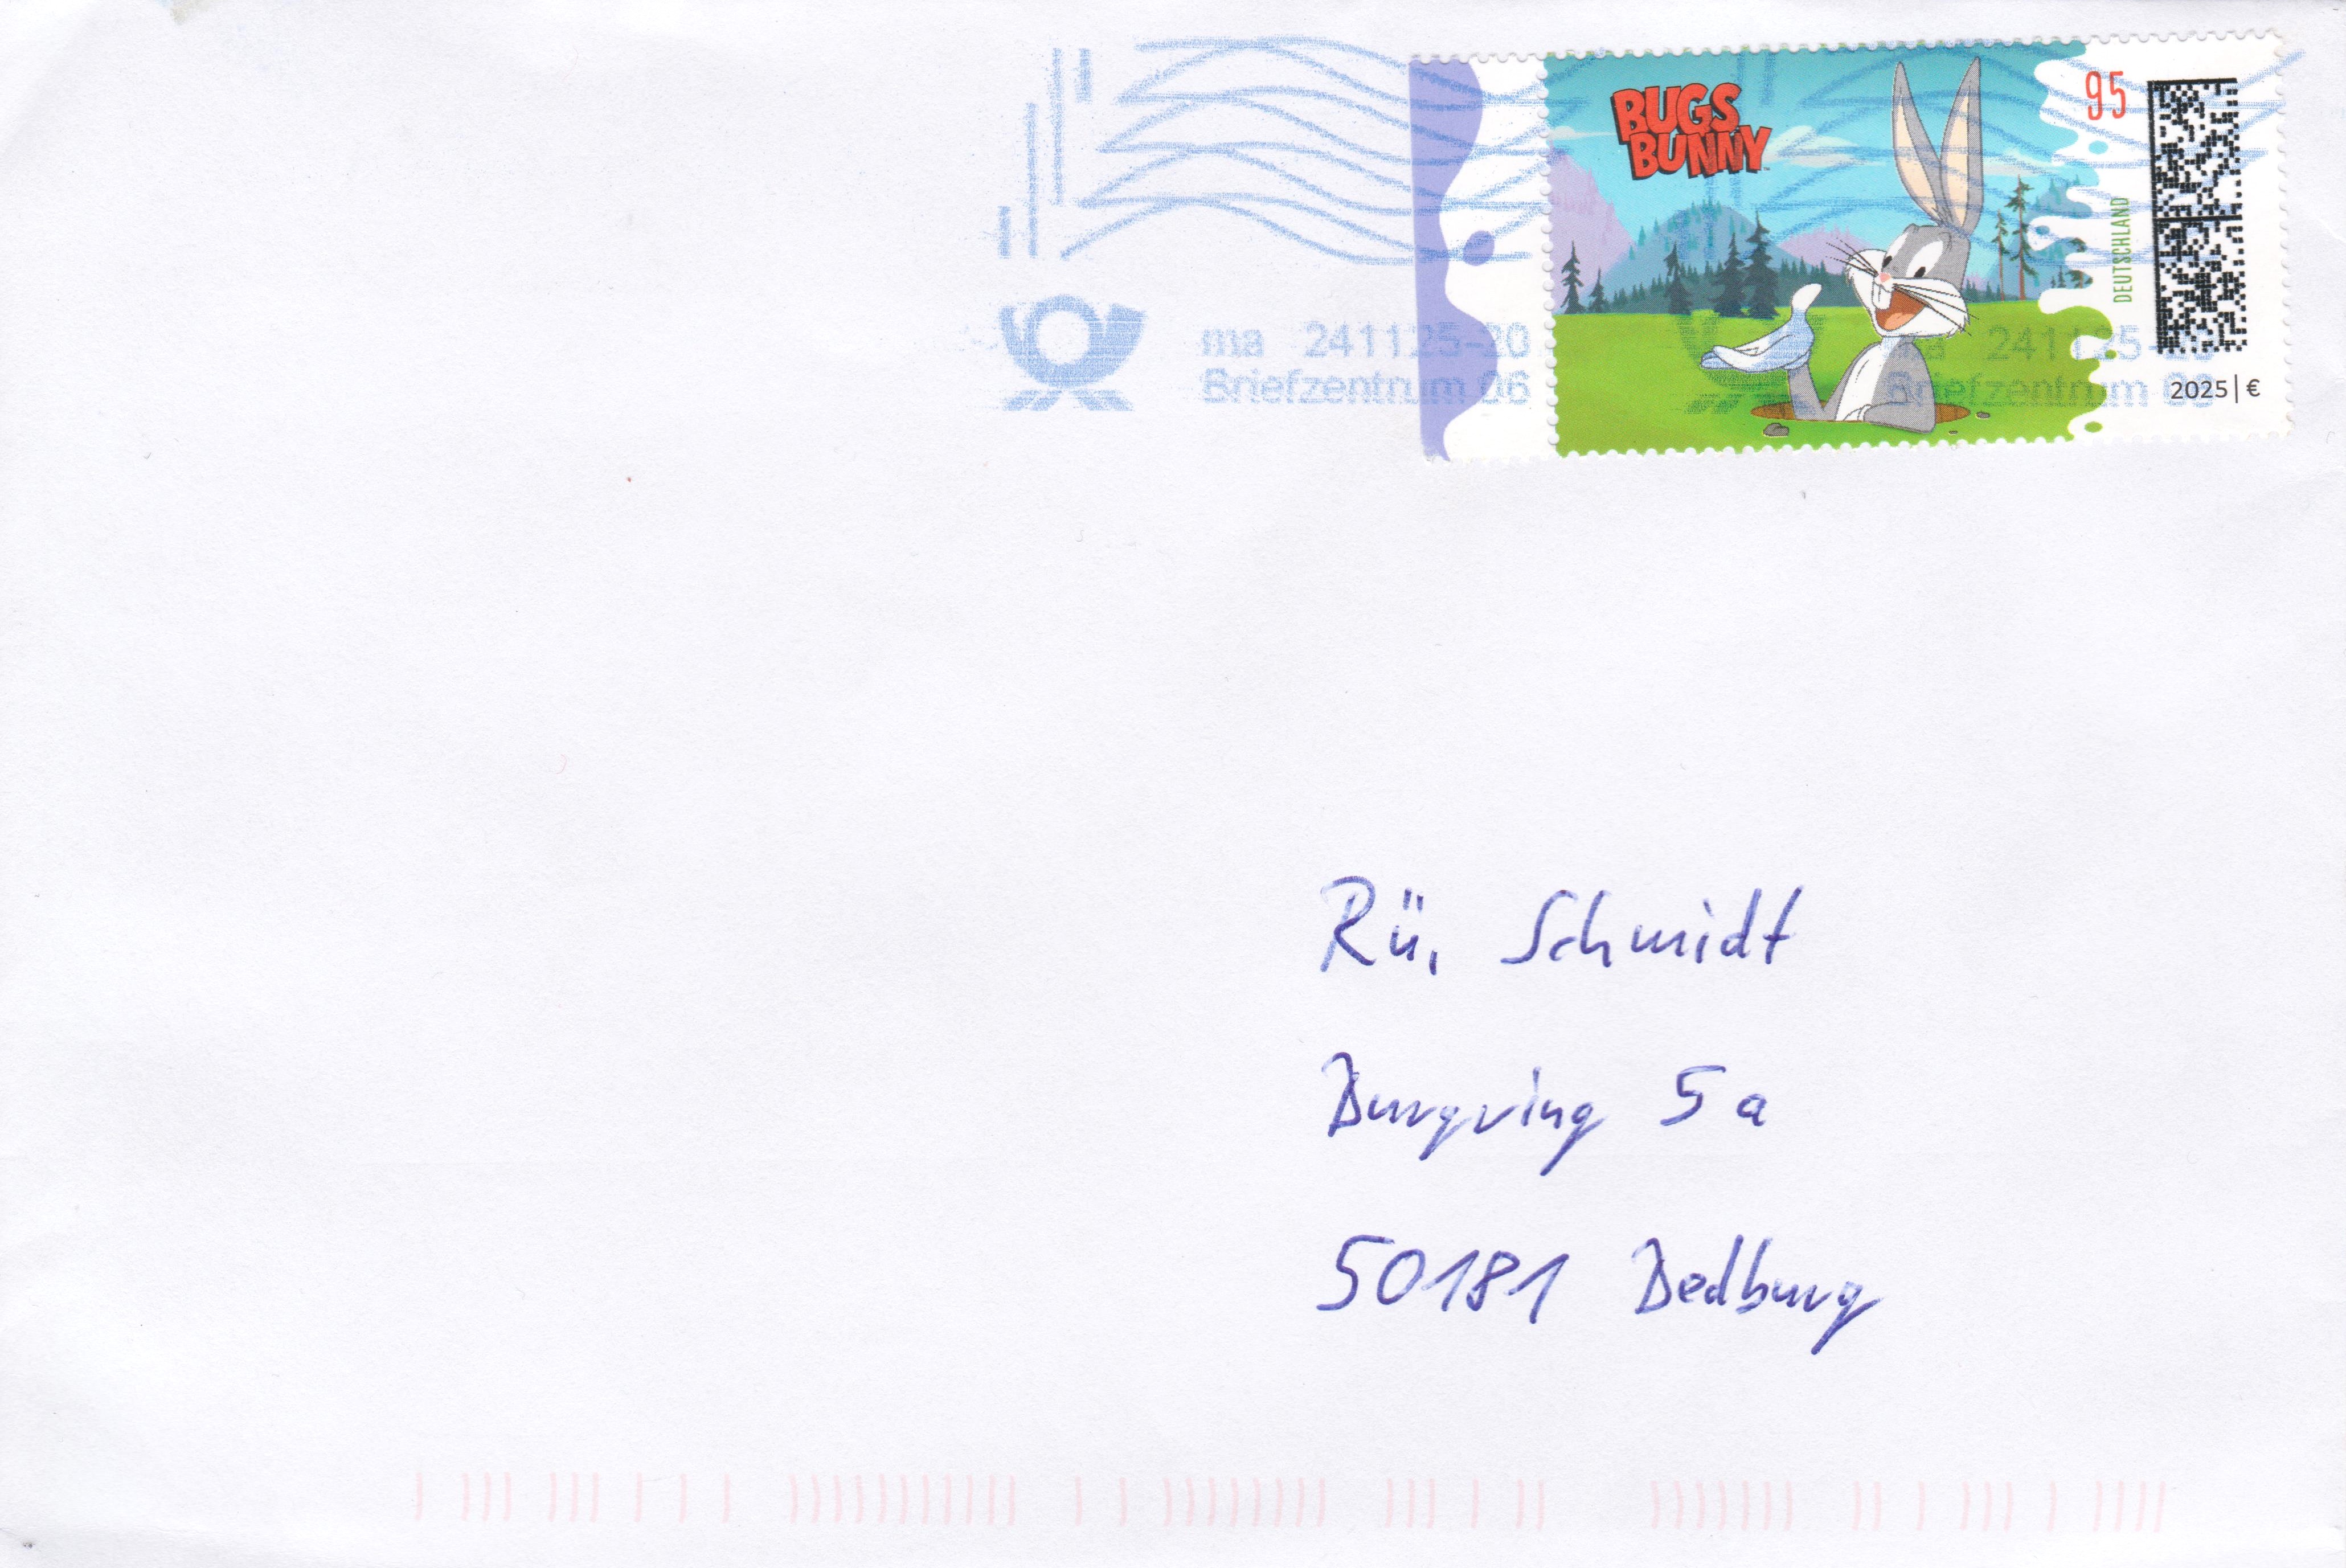 BUGS
BUNNY
95
DEUTSCHLAND
2025 | €
ma 241125-20
Briefzentrum 06
ma 241125-20
Briefzentrum 06
Rü. Schmidt
Burgring 5a
50181 Bedburg